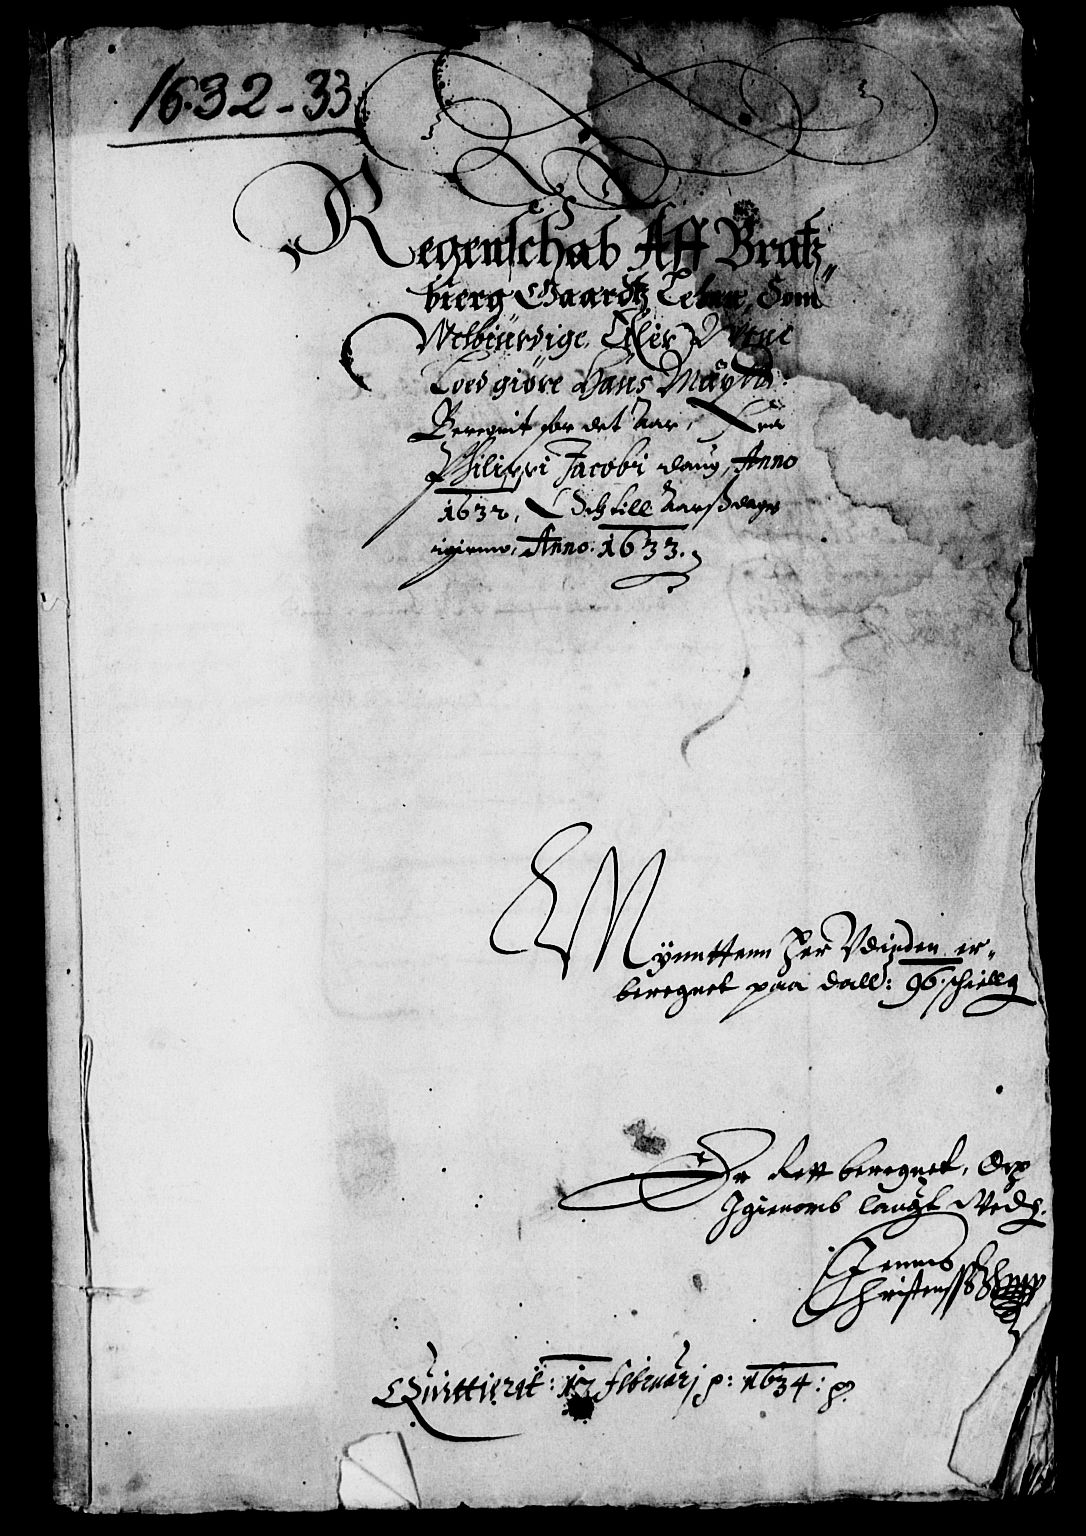 1632-33
Regenschab Aff Bratz„
bierg Gaardtz Lehnn, Som
Welbiurdige Offer Wrne
Loed giøre Hans Mayts:
Beregnit for det Aar, Fra
Philippi Jacobi daug, Anno
1632, Och till Aarßdagen
igienno, Anno. 1633.
Mynnttenn Her Vdinden er„
beregnet paa dall: 96. schiellg
Er Rett beregnet, Och
Igienomb laugt Medh.
Jenns
Christenss
Quittierit: 17 februarj p: 1634: p.